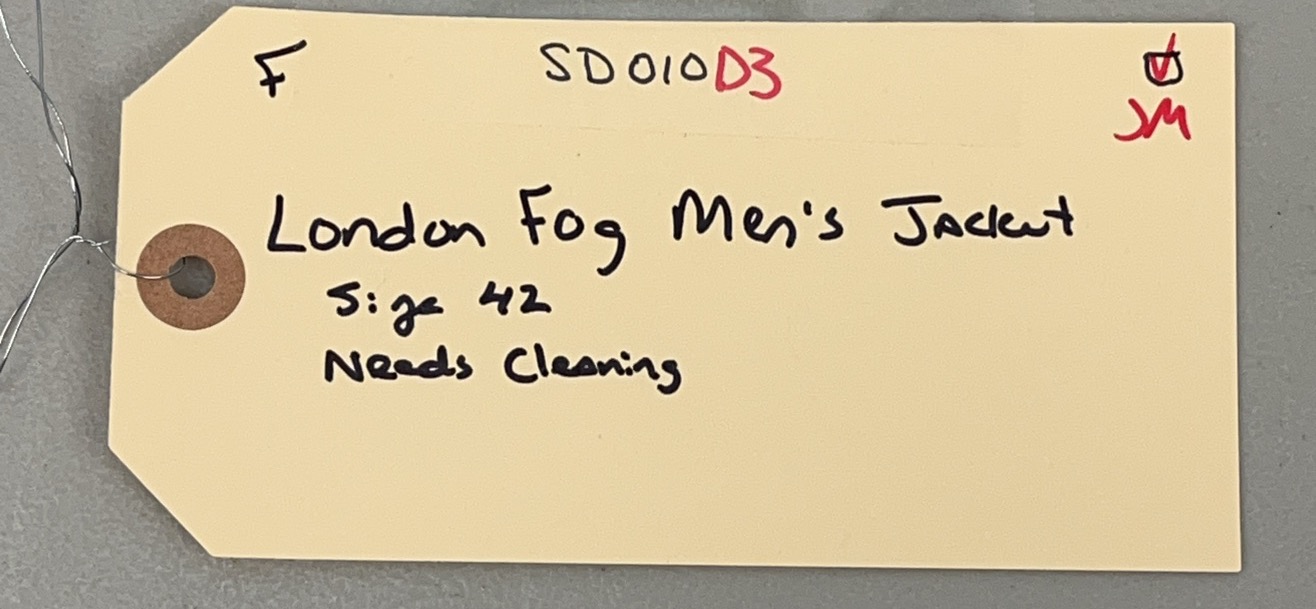 F SD010D3 ☑
JM
London Fog Men's Jacket
Size 42
Needs Cleaning